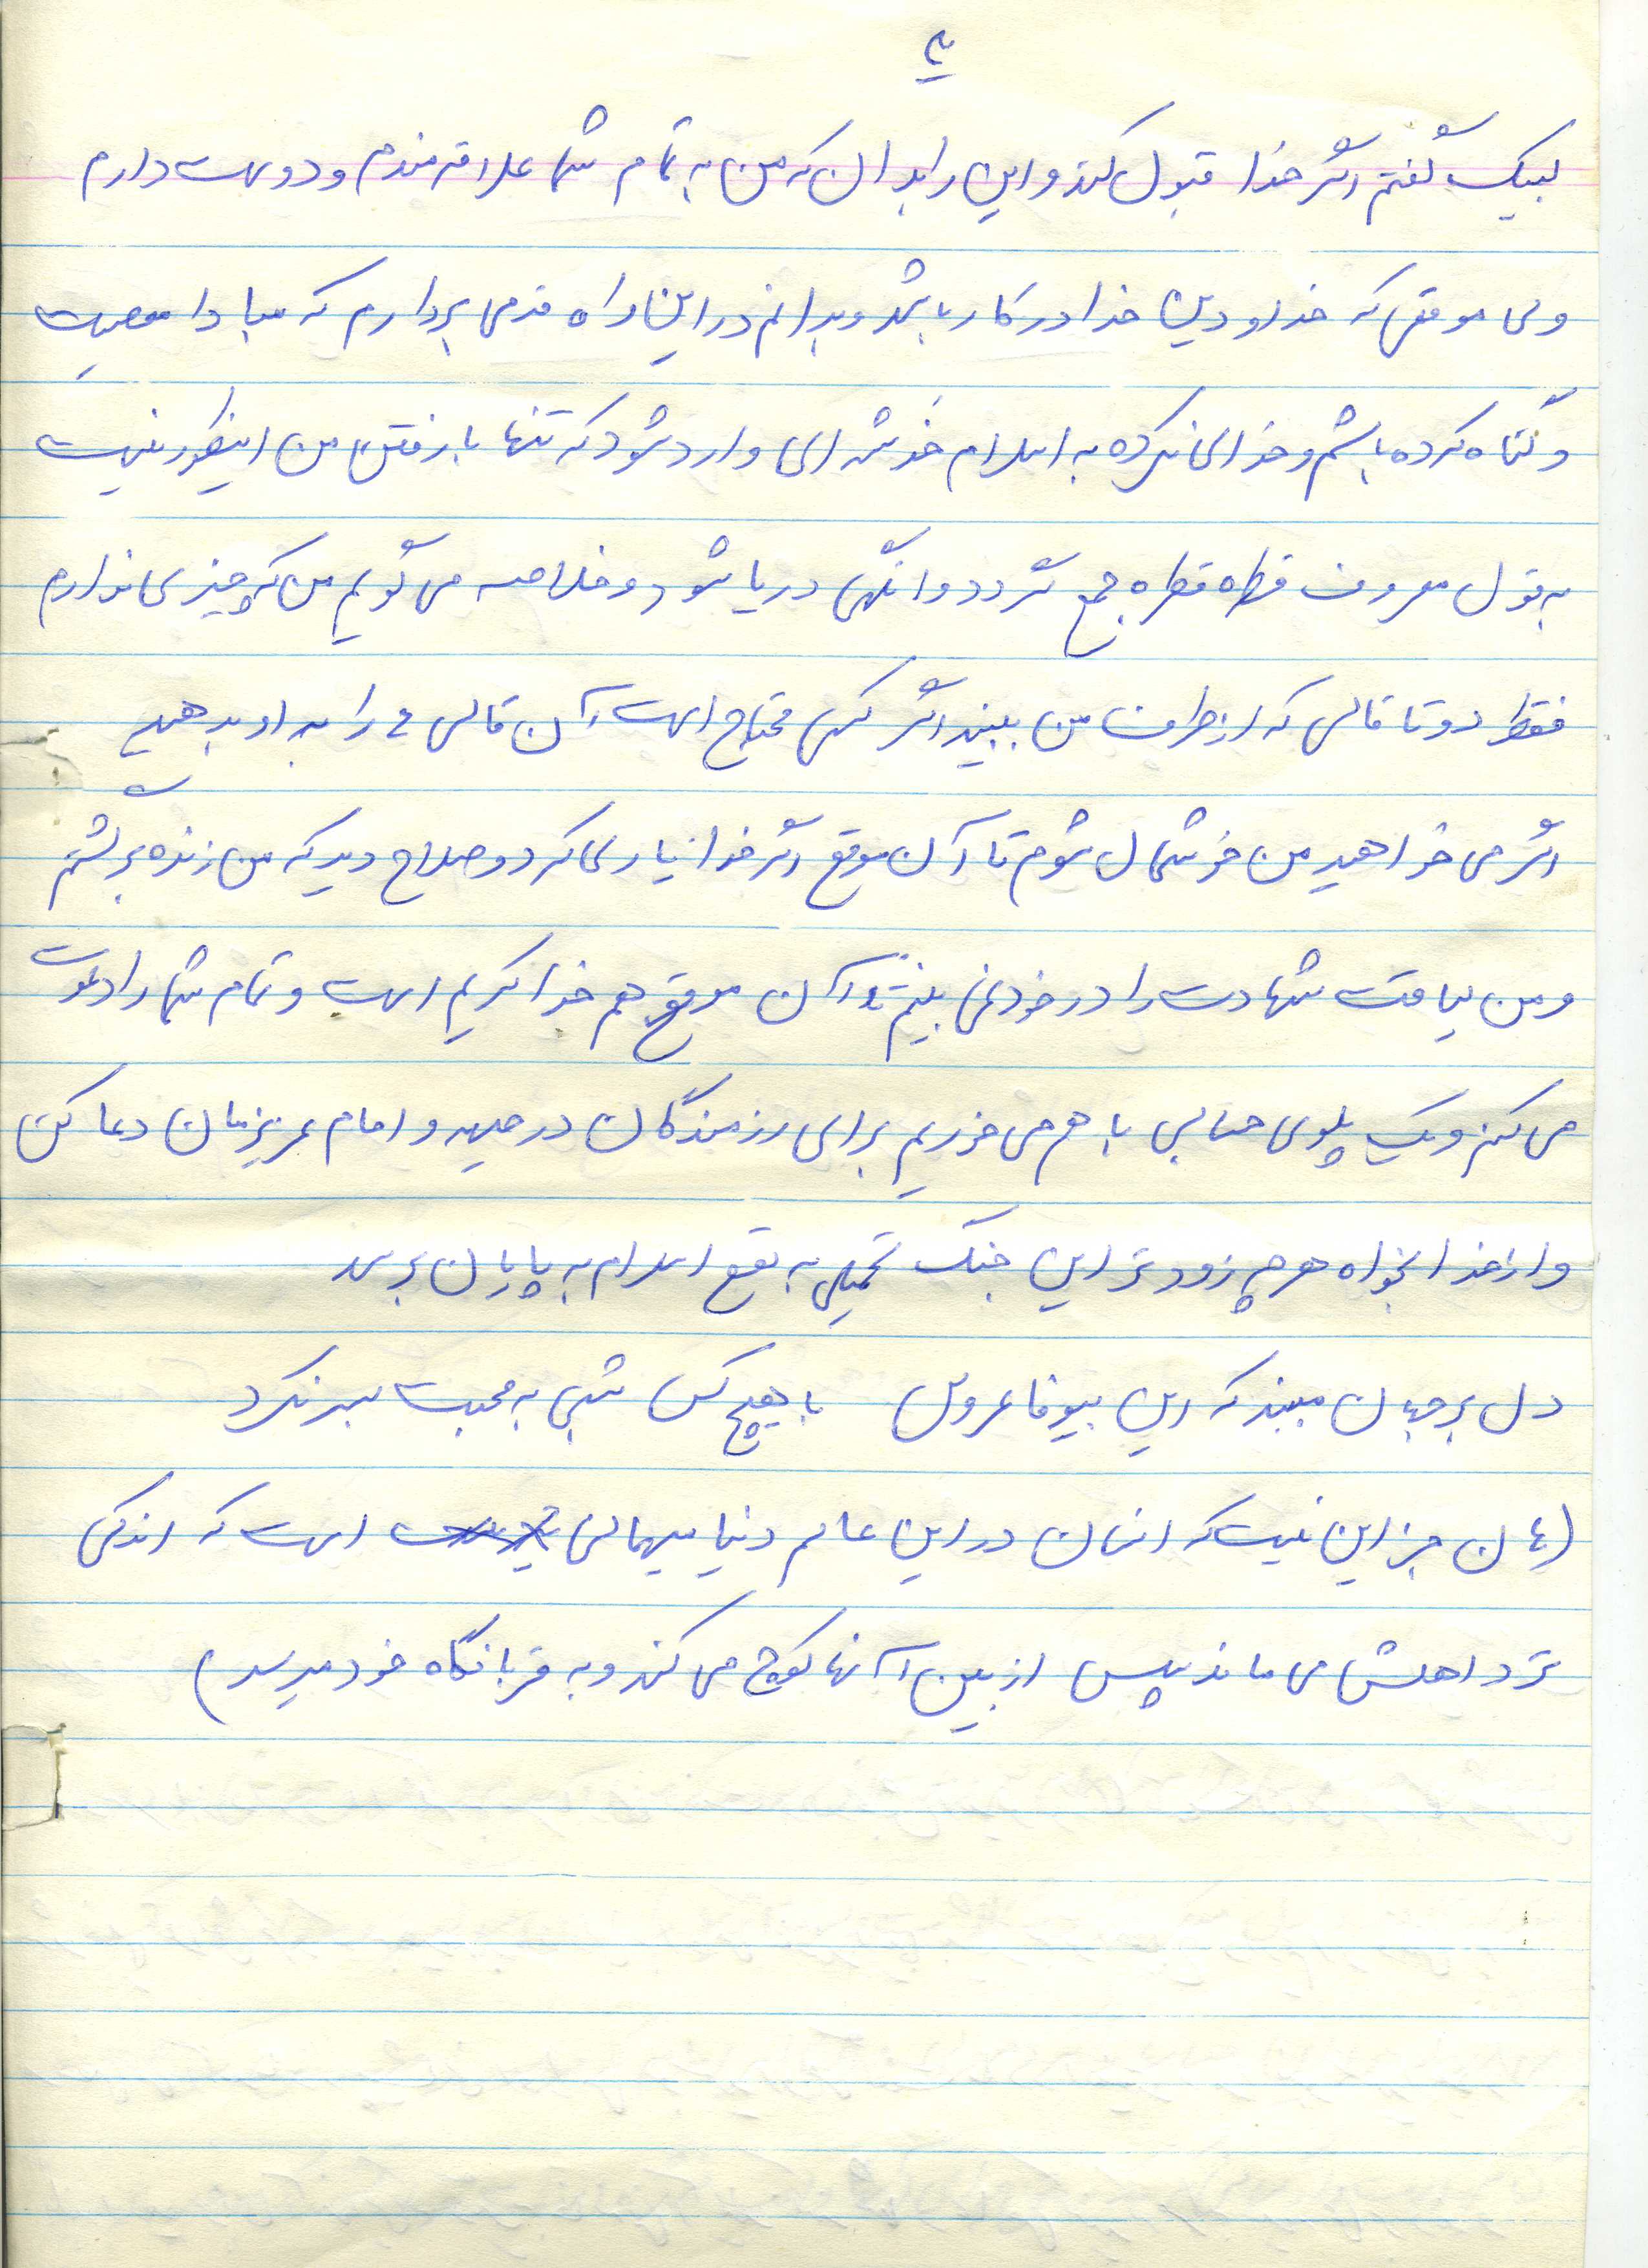 ۳
لبیک گفتم اگر خدا قبول کند و این را بدان که من به تمام شما علاقه مندم و دوست دارم
ولی موقعی که خدا و دین خدا در کار باشد و بدانم در این راه قدمی بردارم که مبادا معصیت
و گناه کرده باشم و خدای نکرده به اسلام خدشه ای وارد شود که تنها با رفتن من اینطور نیست
به قول معروف قطره قطره جمع گردد وانگهی دریا شود و خلاصه می گویم من که چیزی ندارم
فقط دوتا قالی که از طرف من ببیند اگر کسی محتاج است آن قالی ۲ را به او بدهید
اگر می خواهید من خوشحال شوم تا آن موقع اگر خدا یاری کرد و صلاح دید که من زنده برگشتم
و من لیاقت شهادت را در خود نمی بینم تا آن موقع هم خدا کریم است و تمام شما را دعوت
می کنم و یک پلوی حسابی با هم می خوریم برای رزمندگان در جبهه و امام عزیزمان دعا کن
و از خدا بخواه هر چه زودتر این جنگ تحمیلی به نفع اسلام به پایان برسد
دل بر جهان مبند که این بیوفا عروس با هیچ کس شبی به محبت سبر نکرد
(هان جز این نیست که انسان در این عالم دنیا میهمانی است که اندکی
نزد اهلش می ماند سپس از بین آنها کوچ می کند و به قربانگاه خود میرسد)